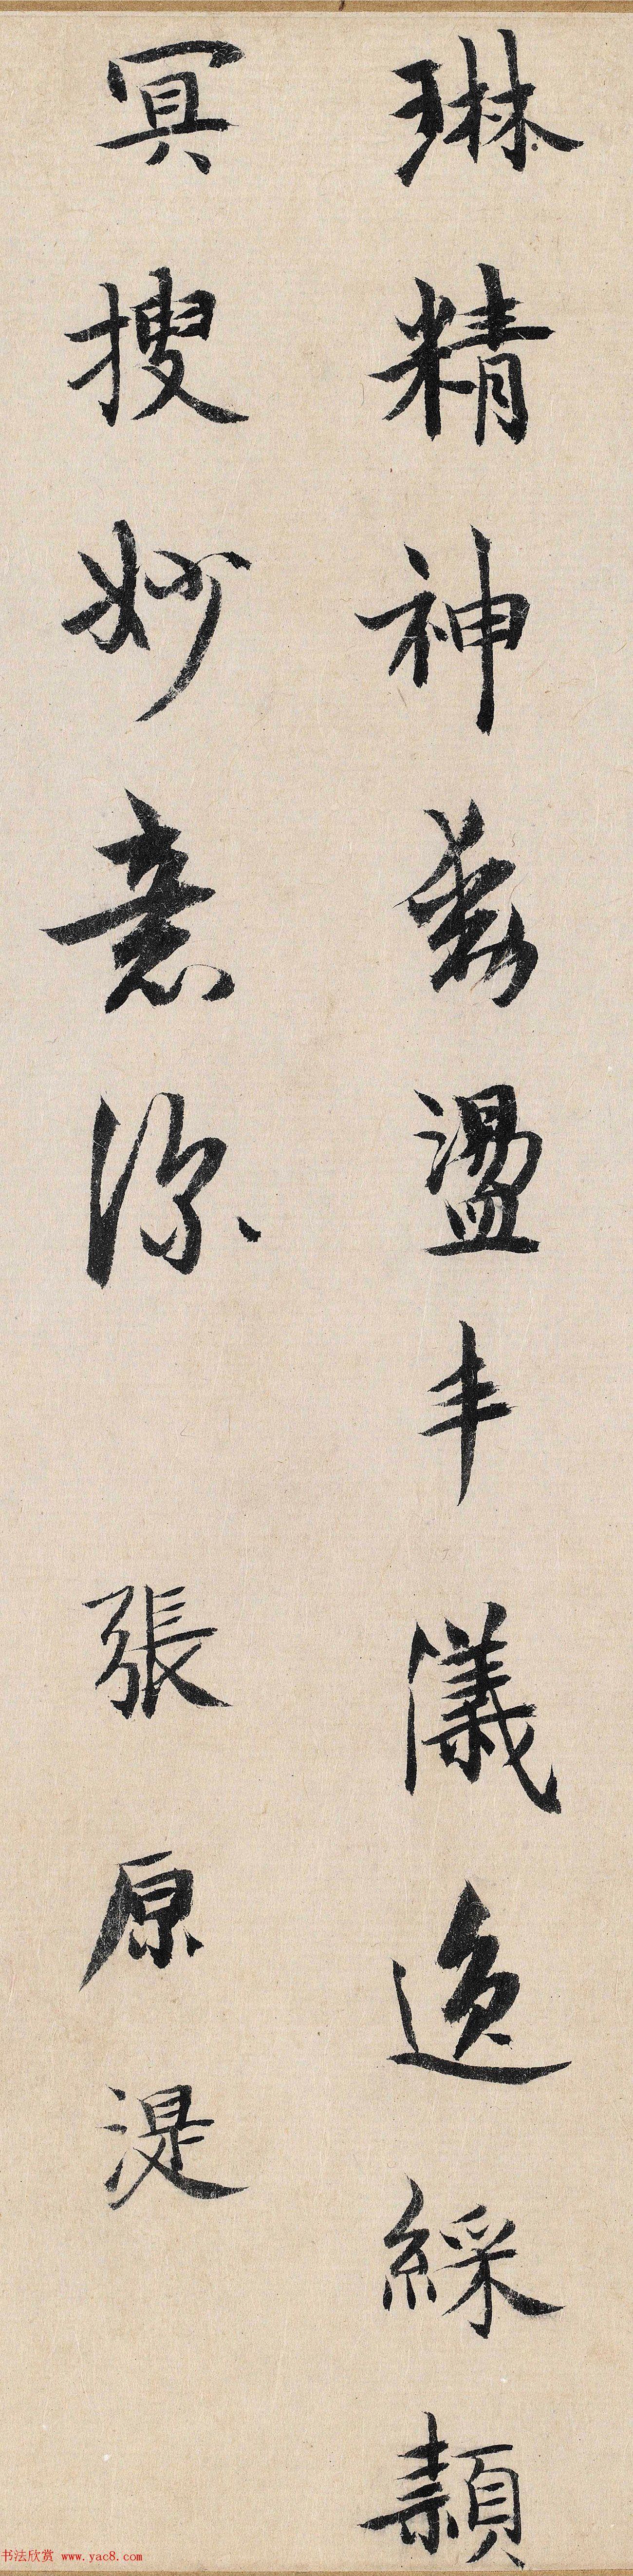 琳精神發盪丰儀逸綵穎
冥搜妙意深
張原湜
书法欣赏 www.yac8.com